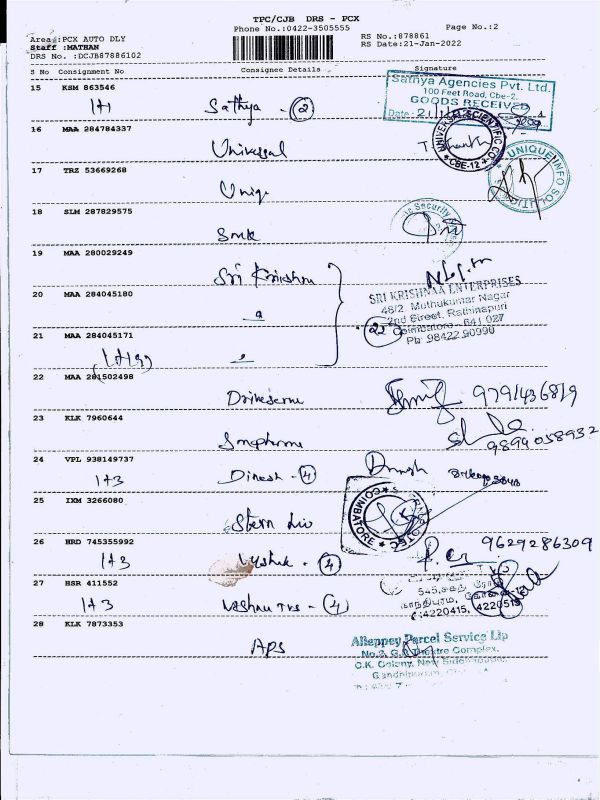 TPC/CJB DRS - PCX
Phone No.:0422-3505555 Page No.:2
Area :PCX AUTO DLY RS No.:878861
Staff :MATHAN RS Date:21-Jan-2022
DRS No. :DCJB87886102
S No Consignment No Consignee Details Signature
15 KSM 863546
1+1 Sathya - 2
Sathya Agencies Pvt. Ltd.
100 Feet Road, Cbe-2.
GOODS RECEIVED
Date: 21/1
16 MAA 284784337
Universal
UNIVERSAL SCIENTIFIC CO
CBE-12
17 TRZ 53669268
Uniq
UNIQUE INFO SOLUTIONS
18 SLM 287829575
Smk
Security
19 MAA 280029249
Sri Krishna
20 MAA 284045180
SRI KRISHNAA ENTERPRISES
48/2, Muthukumar Nagar
2nd Street, Rathinapuri
Coimbatore - 641 027
Ph: 98422 90990
21 MAA 284045171
22 MAA 281502498
9791436819
23 KLK 7960644
9894058932
24 VPL 938149737
1+3 Dinesh - 4 Dinesh
25 IXM 3266080
COIMBATORE
26 HRD 745355992
1+3 - 4 9629286309
27 HSR 411552
1+3 Vishnu TVS - 4
545,
4220415, 4220515
28 KLK 7873353
APS
Alleppey Parcel Service Llp
No.3, G.P. Theatre Complex,
C.K. Colony, New Siddhapudur,
Gandhipuram,